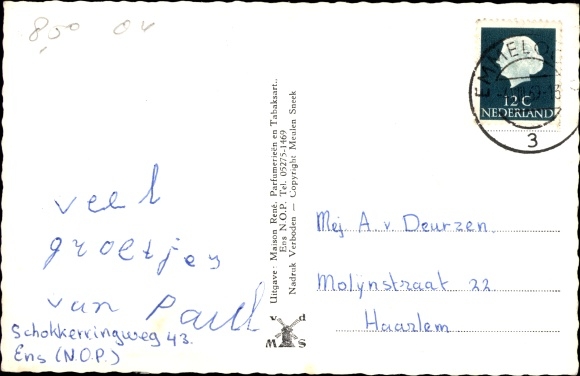 850 OV
12 C
NEDERLAND
EMMELO
3
veel
groetjes
van Paul
Schokkerringweg 43.
Ens (N.O.P.)
Uitgave: Maison René. Parfumerieën en Tabaksart..
Ens N.O.P. Tel. 05275-1469
Nadruk Verboden — Copyright Meulen Sneek
v d
M S
Mej. A. v. Deurzen.
Molijnstraat 22.
Haarlem